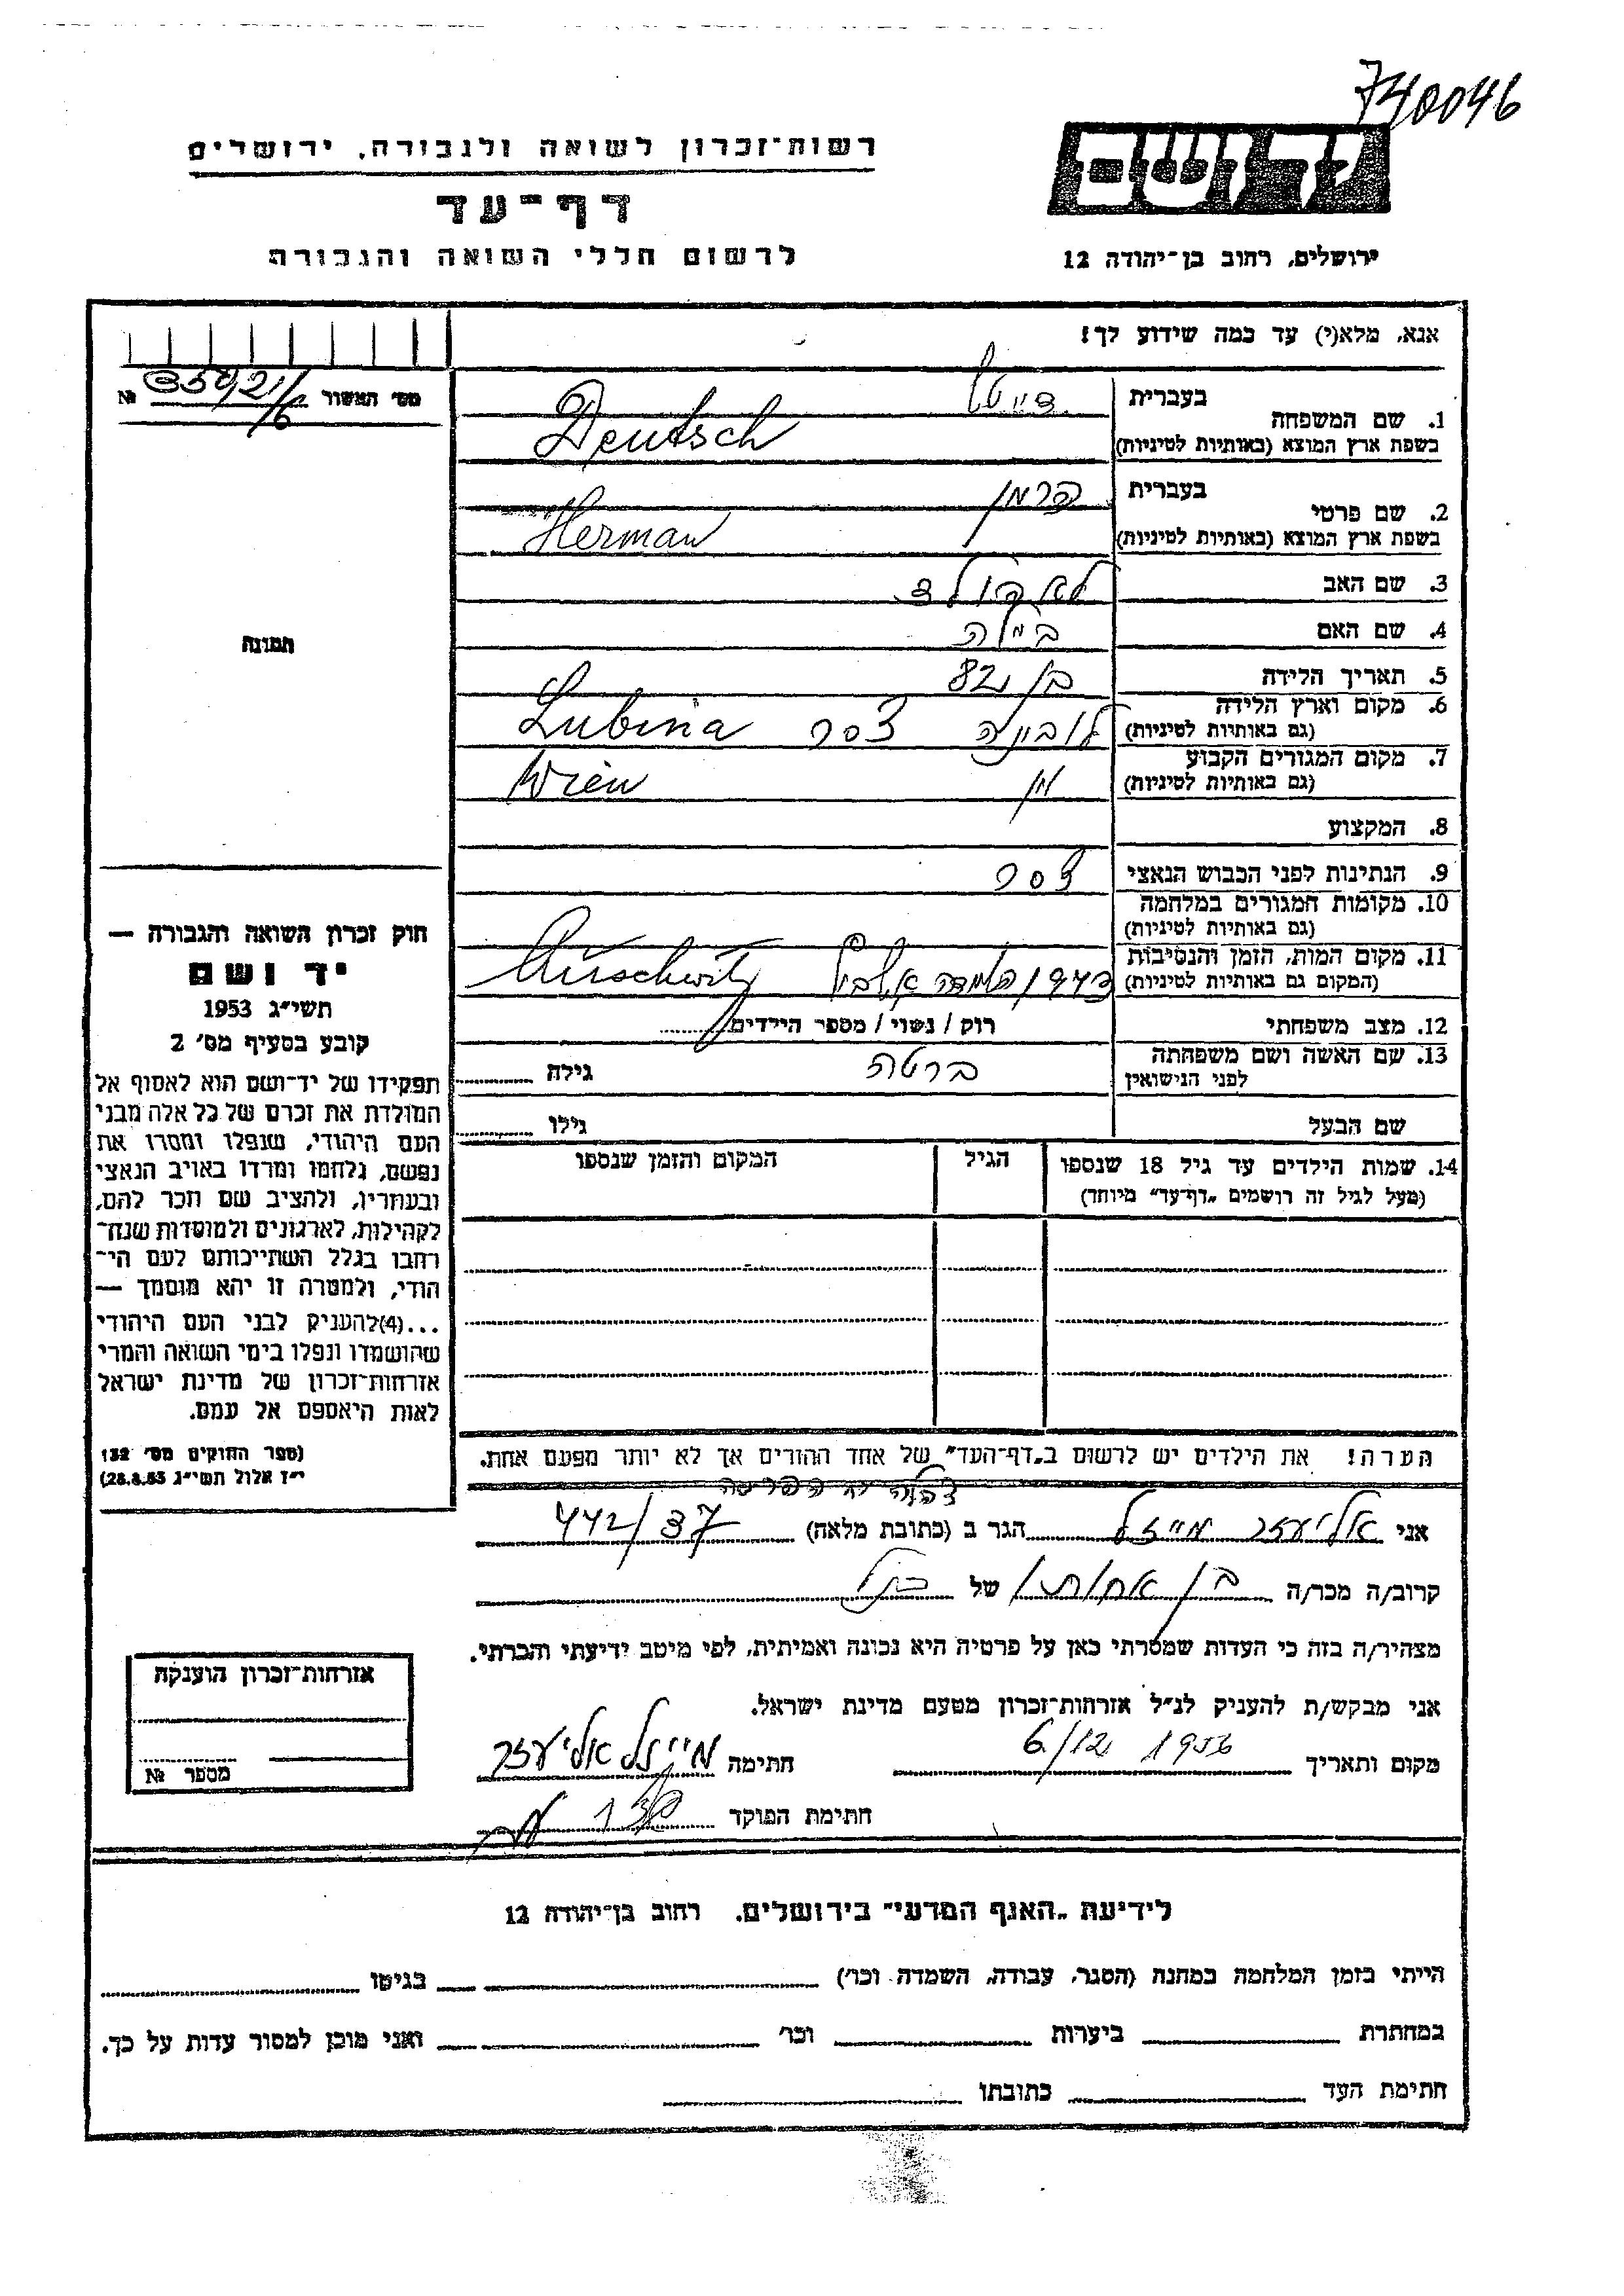 740046
ידושם
רשות־זכרון לשואה ולגבורה, ירושלים
דף־עד
לרשום חללי השואה והגבורה
ירושלים, רחוב בן־יהודה 12
אנא, מלא(י) עד כמה שידוע לך!
מס' האשור №
1. שם המשפחה
בעברית
בשפת ארץ המוצא (באותיות לטיניות) Deutsch
2. שם פרטי
בעברית הרמן
בשפת ארץ המוצא (באותיות לטיניות) Herman
3. שם האב
4. שם האם
5. תאריך הלידה בן 82
6. מקום וארץ הלידה
(גם באותיות לטיניות) לובינה צ'כ Lubina
7. מקום המגורים הקבוע
(גם באותיות לטיניות) וין Wien
8. המקצוע
9. הנתינות לפני הכבוש הנאצי
10. מקומות המגורים במלחמה
(גם באותיות לטיניות)
11. מקום המות, הזמן והנסיבות
(המקום גם באותיות לטיניות) 1943 Auschwitz
12. מצב משפחתי רוק / נשוי / מספר הילדים
13. שם האשה ושם משפחתה
לפני הנישואין ברטה גילה
שם הבעל גילו
14. שמות הילדים עד גיל 18 שנספו הגיל המקום והזמן שנספו
(מעל לגיל זה רושמים „דף־עד" מיוחד)
הערה! את הילדים יש לרשום ב„דף־העד" של אחד ההורים אך לא יותר מפעם אחת.
אני אליעזר מייזל הגר ב (כתובת מלאה) 442/37
קרוב/ה מכר/ה בן אחותו של הנ"ל
מצהיר/ה בזה כי העדות שמסרתי כאן על פרטיה היא נכונה ואמיתית, לפי מיטב ידיעתי והכרתי.
אני מבקש/ת להעניק לנ"ל אזרחות־זכרון מטעם מדינת ישראל.
מקום ותאריך 6/12 1956 חתימה מייזל אליעזר
חתימת הפוקד
תמונה
חוק זכרון השואה והגבורה —
יד ושם
תשי"ג 1953
קובע בסעיף מס' 2
תפקידו של יד־ושם הוא לאסוף אל
המולדת את זכרם של כל אלה מבני
העם היהודי, שנפלו ומסרו את
נפשם, נלחמו ומרדו באויב הנאצי
ובעוזריו, ולהציב שם וזכר להם,
לקהילות, לארגונים ולמוסדות שנח־
רבו בגלל השתייכותם לעם הי־
הודי, ולמטרה זו יהא מוסמך —
...(4) להעניק לבני העם היהודי
שהושמדו ונפלו בימי השואה והמרי
אזרחות־זכרון של מדינת ישראל
לאות היאספם אל עמם.
(ספר החוקים מס' 132
י"ז אלול תשי"ג 28.8.53)
אזרחות־זכרון הוענקה
מספר №
לידיעת „האגף המדעי" בירושלים, רחוב בן־יהודה 12
הייתי בזמן המלחמה במחנה (הסגר, עבודה, השמדה וכו') בגיטו
במחתרת ביערות וכו' ואני מוכן למסור עדות על כך.
חתימת העד כתובתו